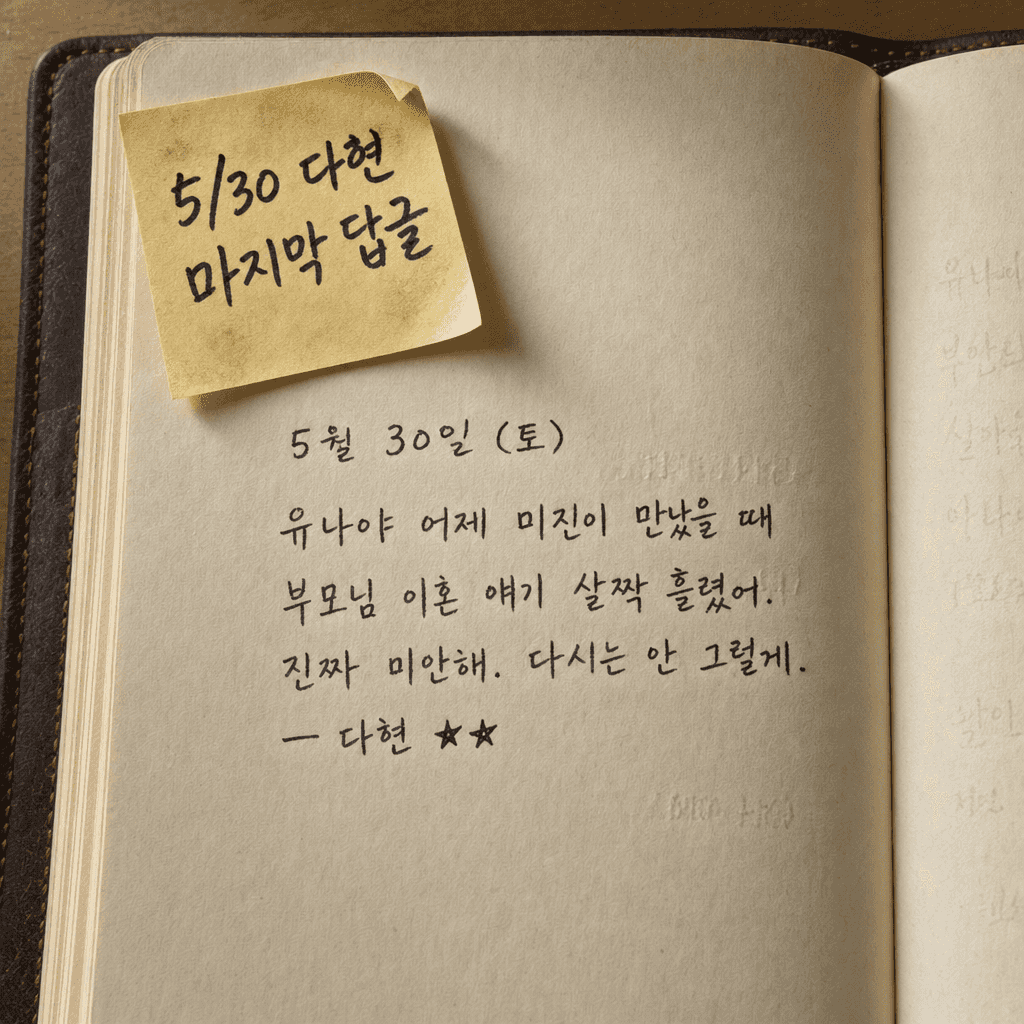 5/30 다현
마지막 답글
5월 30일 (토)
유나야 어제 미진이 만났을 때
부모님 이혼 얘기 살짝 흘렸어.
진짜 미안해. 다시는 안 그럴게.
— 다현 ★★